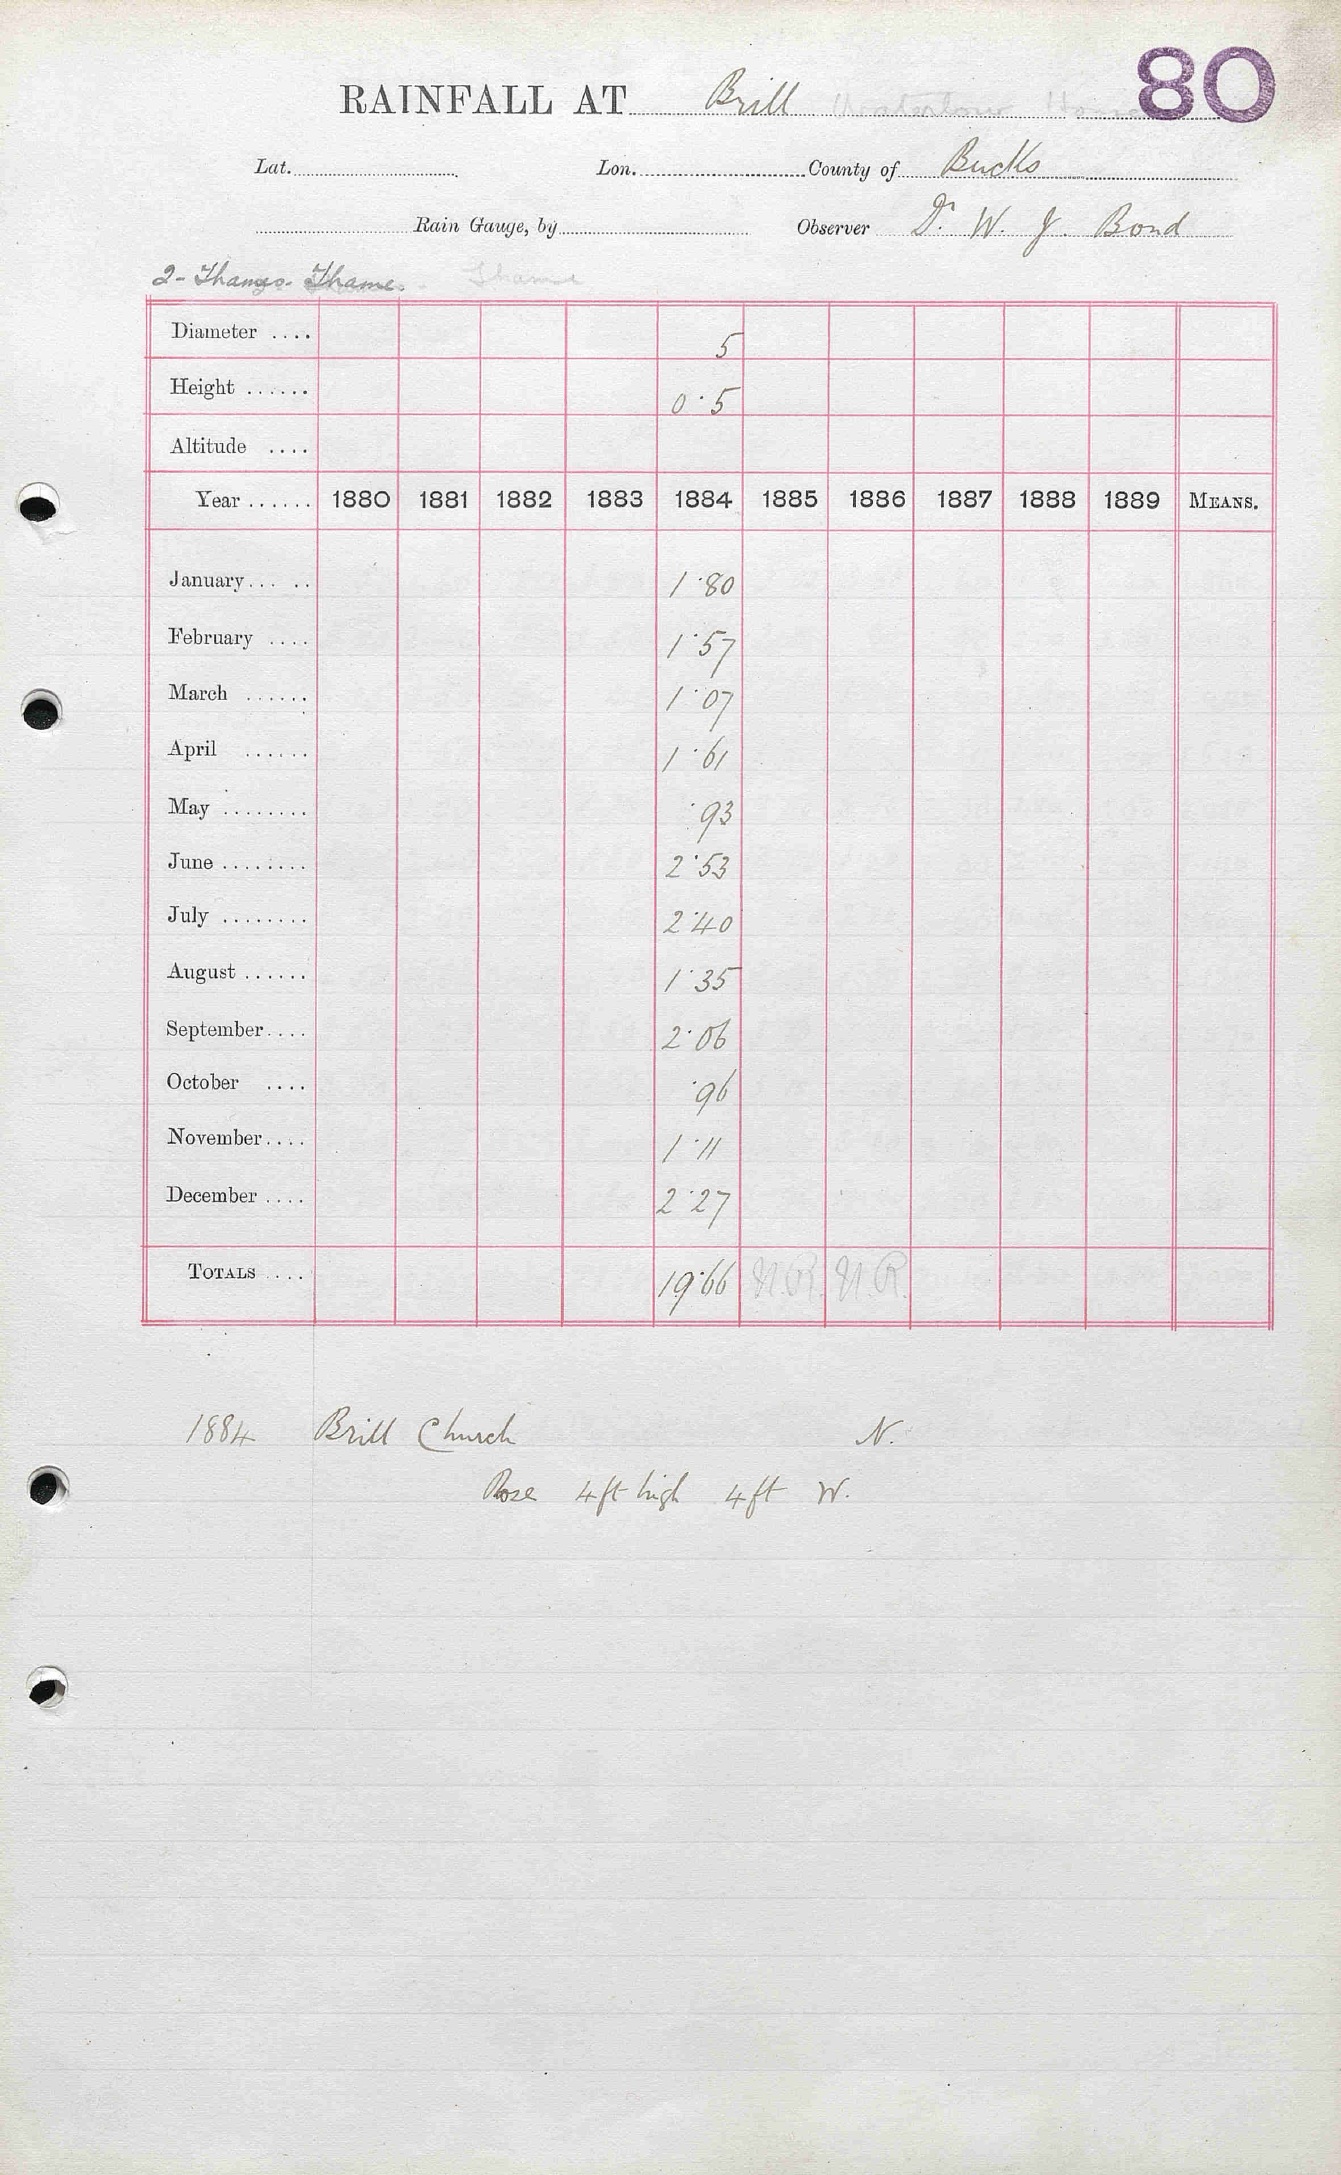 80
RAINFALL AT Brill Waterloo House
Lat. Lon. County of Bucks
Rain Gauge, by Observer Dr. W. J. Bond
2 - Thames - Thame. Thame
Diameter .... 5
Height ...... 0·5
Altitude ....
Year ...... 1880 1881 1882 1883 1884 1885 1886 1887 1888 1889 MEANS.
January... .. 1·80
February .... 1·57
March ...... 1·07
April ...... 1·61
May ........ ·93
June ........ 2·53
July ........ 2·40
August ...... 1·35
September.... 2·06
October .... ·96
November.... 1·11
December .... 2·27
TOTALS .... 19·66 N.R. N.R.
1884 Brill Church N.
Rose 4ft high 4ft W.